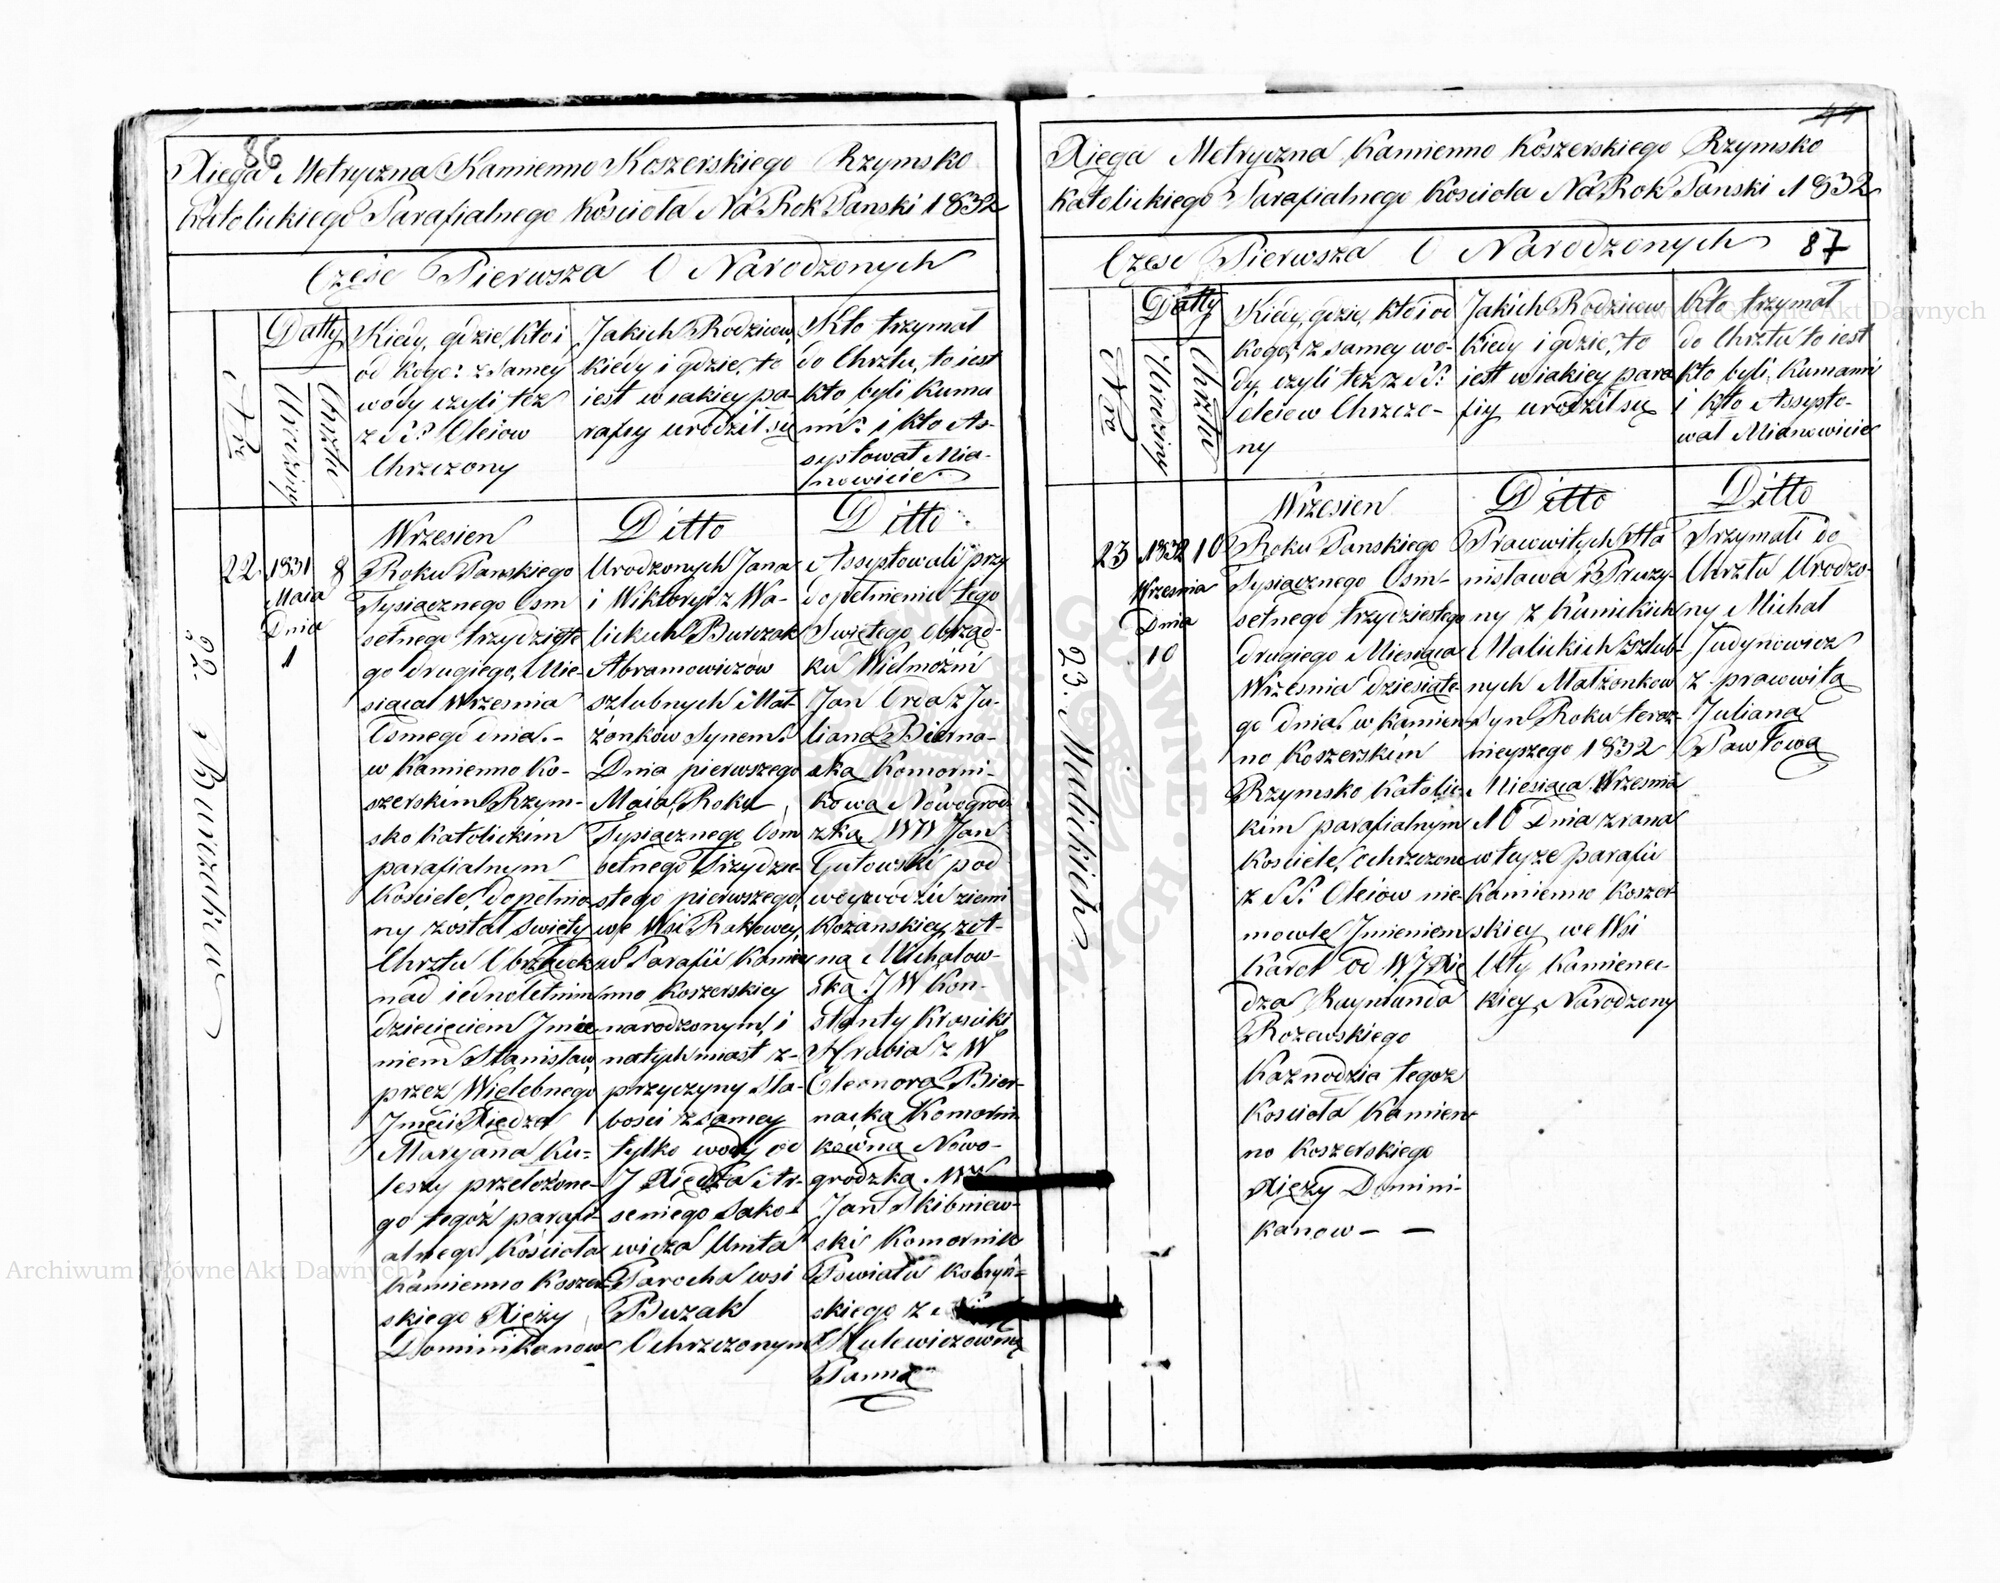 86
Xięga Metryczna Kamienno Koszerskiego Rzymsko
Katolickiego Parafialnego Kosciola Na Rok Panski 1832
Częsc Pierwsza O Narodzonych
Nro
Datty
Urodziny
Chrztu
Kiedy, gdzie, kto i
od kogo? z samey
wody czyli też
z SS. Oleiow
Chrzczony
Jakich Rodzicow,
kiedy i gdzie, to
iest w iakiey pa-
rafiy urodził się
Kto trzymał
do Chrztu, to iest
kto byli Kuma
mi? i kto As-
systował Mia-
nowicie
22. Burzakow
22.
1831
Maia
Dnia
1
8
Wrzesien
Roku Panskiego
Tysiącznego Osm
setnego trzydzieste
go drugiego, Mie-
siąca Wrzesnia
Osmego dnia.-
w Kamienno Ko-
szerskim Rzym-
sko Katolickim
parafialnym
Kosciele, dopełnio
ny został swięty
Chrztu Obrządek
nad iednoletnim
dziecięciem Jmie
niem Stanisław,
przez Wielebnego
Jmci Xiędza
Maryana Ku-
leszy przełożone-
go tegoż parafi-
alnego Kościoła
Kamienno Koszer-
skiego Xięży
Dominikanow
Ditto
Urodzonych Jana
i Wiktoryi z Wa-
lickich Burczak
Abramowiczów
szlubnych Mał-
żonków Synem.
Dnia pierwszego
Maia, Roku
Tysiącznego Osm
setnego Trzydzie
stego pierwszego,
we Wsi Rakowey,
w Parafii Kamie
nno Koszerskiey
narodzonym, i
natychmiast z-
przyczyny sła-
bosci z samey
tylko wody od
J Xiędza Ar-
seniego Sako-
wicza Unita
Parocha wsi
Buzak
Ochrzczonym
Ditto
Assystowali przy
dopełnieniu tego
Swiętego Obrząd-
ku Wielmożni
Jan Orda z Ju-
lianą Bierna-
cką Komorni-
kową Nowogrod
zką WW Jan
Gutowski pod
woiewodzic ziemi
Rożanskiey z Pt-
ną Michałow-
ską JW Kon-
stanty Krosicki
Hrabia z W
Eleonorą Bier-
nacką Komorni
kowną Nowo-
grodzką
Jan Skibniew-
ski Komornik
Powiatu Kobryń-
skiego z
Kulewiczowną
Panną
44
Xięga Metryczna Kamienno Koszerskiego Rzymsko
Katolickiego Parafialnego Kosciola Na Rok Panski 1832
Częsc Pierwsza O Narodzonych 87
Nro
Datty
Urodziny
Chrztu
Kiedy, gdzie, kto i od
kogo? z samey wo-
dy czyli też z SS.
Oleiew Chrzczo-
ny
Jakich Rodzicow
Kiedy i gdzie, to
iest w iakiey para
fiy urodził się
Kto trzymał
do Chrztu to iest
kto byli, Kumami
i kto Assysto-
wał Mianowicie
23. Malickich
23
1832
Wrzesnia
Dnia
10
10
Wrzesien
Roku Panskiego
Tysiącznego Osm-
setnego trzydziestego
drugiego Miesiąca
Wrzesnia dziesiąte-
go dnia. w Kamien-
no Koszerskim
Rzymsko Katolic-
kim parafialnym
Kosciele, Ochrzczone
z SS. Oleiow nie-
mowle Jmieniem
Karol od W J Xię
dza Raymunda
Rozewskiego
Kaznodzia tegoż
Kosciola Kamien-
no Koszerskiego
Xięży Domini-
kanow - -
Ditto
Pracowitych Sta
nisława i Pruzy-
ny z Kunickich
Malickich Szlub-
nych Małżonkow
Syn Roku teraz-
nieyszego 1832
Miesiąca Wrzesnia
10 Dnia z rana
w teyże parafii
Kamienno Koszer
skiey we Wsi
Uły Kamienec-
kiey Narodzony
Ditto
Trzymali do
Chrztu Urodzo-
ny Michał
Judynowicz
z pracowitą
Julianą
Pawłową
Archiwum Główne Akt Dawnych
Archiwum Główne Akt Dawnych